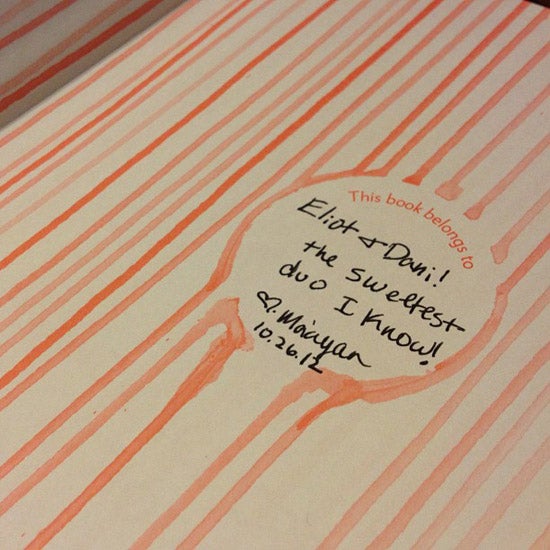 This book belongs to
Eliot + Dani!
the sweetest
duo I know!
♡, Maayan
10.26.12